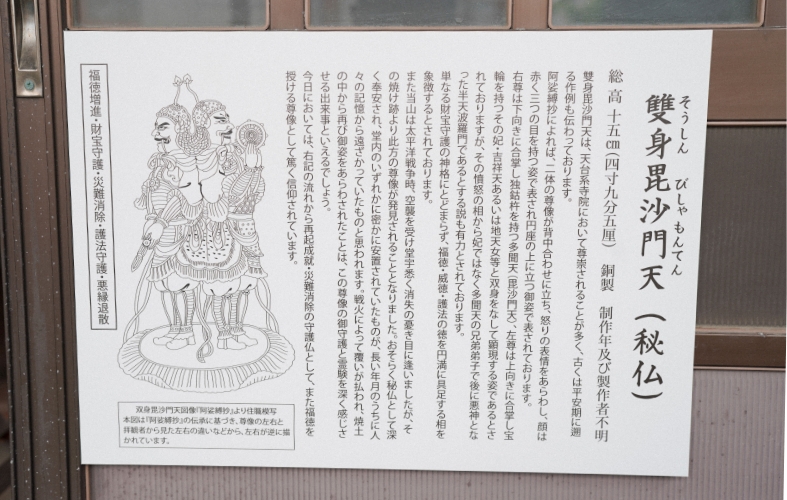 雙身毘沙門天（秘仏）
そうしん　びしゃもんてん
総高 十五㎝（四寸九分五厘）　銅製　制作年及び製作者不明
雙身毘沙門天は、天台系寺院において尊崇されることが多く、古くは平安期に遡
る作例も伝わっております。
阿娑縛抄によれば、二体の尊像が背中合わせに立ち、怒りの表情をあらわし、顔は
赤く三つの目を持つ姿で表され円座の上に立つ御姿で表されております。
右尊は下向きに合掌し独鈷杵を持つ多聞天（毘沙門天）、左尊は上向きに合掌し宝
輪を持つその妃・吉祥天あるいは地天女等と双身をなして顕現する姿であるとさ
れておりますが、その憤怒の相から妃ではなく多聞天の兄弟弟子で後に悪神とな
った半天波羅門であるとする説も有力とされております。
単なる財宝守護の神格にとどまらず、福徳・威徳・護法の徳を円満に具足する相を
象徴するとされております。
また当山は太平洋戦争時、空襲を受け堂宇悉く消失の憂き目に逢いましたが、そ
の焼け跡より此方の尊像が発見されることとなりました。おそらく秘仏として深
く奉安され、堂内のいずれかに密かに安置されていたものが、長い年月のうちに人
々の記憶から遠ざかっていたものと思われます。戦火によって覆いが払われ、焼土
の中から再び御姿をあらわされたことは、この尊像の御守護と霊験を深く感じさ
せる出来事といえるでしょう。
今日においては、右記の流れから再起成就・災難消除の守護仏として、また福徳を
授ける尊像として篤く信仰されています。
双身毘沙門天図像『阿娑縛抄』より住職模写
本図は『阿娑縛抄』の伝承に基づき、尊像の左右と
拝観者から見た左右の違いなどから、左右が逆に描
かれています。
福徳増進・財宝守護・災難消除・護法守護・悪縁退散